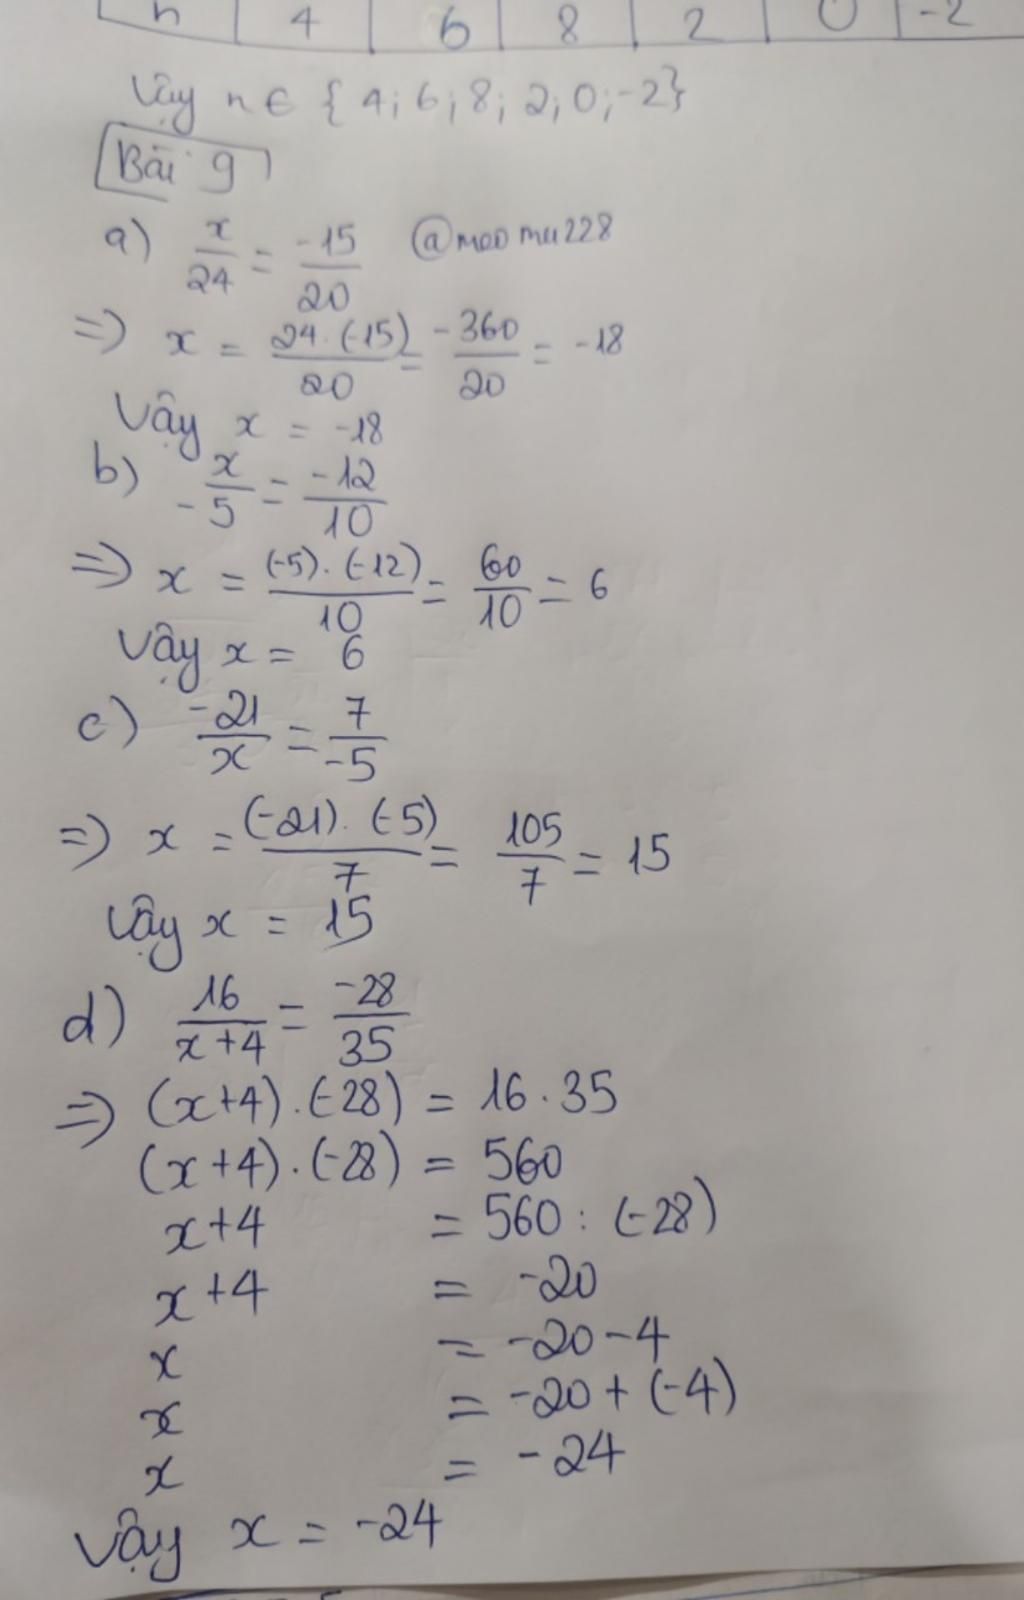 n | 4 | 6 | 8 | 2 | 0 | -2
Vậy n ∈ {4; 6; 8; 2; 0; -2}
Bài 9
a) x/24 = -15/20 @moomu228
=> x = 24 . (-15)/20 = -360/20 = -18
Vậy x = -18
b) x/-5 = -12/10
=> x = (-5) . (-12)/10 = 60/10 = 6
Vậy x = 6
c) -21/x = 7/-5
=> x = (-21) . (-5)/7 = 105/7 = 15
Vậy x = 15
d) 16/x+4 = -28/35
=> (x+4) . (-28) = 16 . 35
(x+4) . (-28) = 560
x+4 = 560 : (-28)
x+4 = -20
x = -20-4
x = -20 + (-4)
x = -24
Vậy x = -24